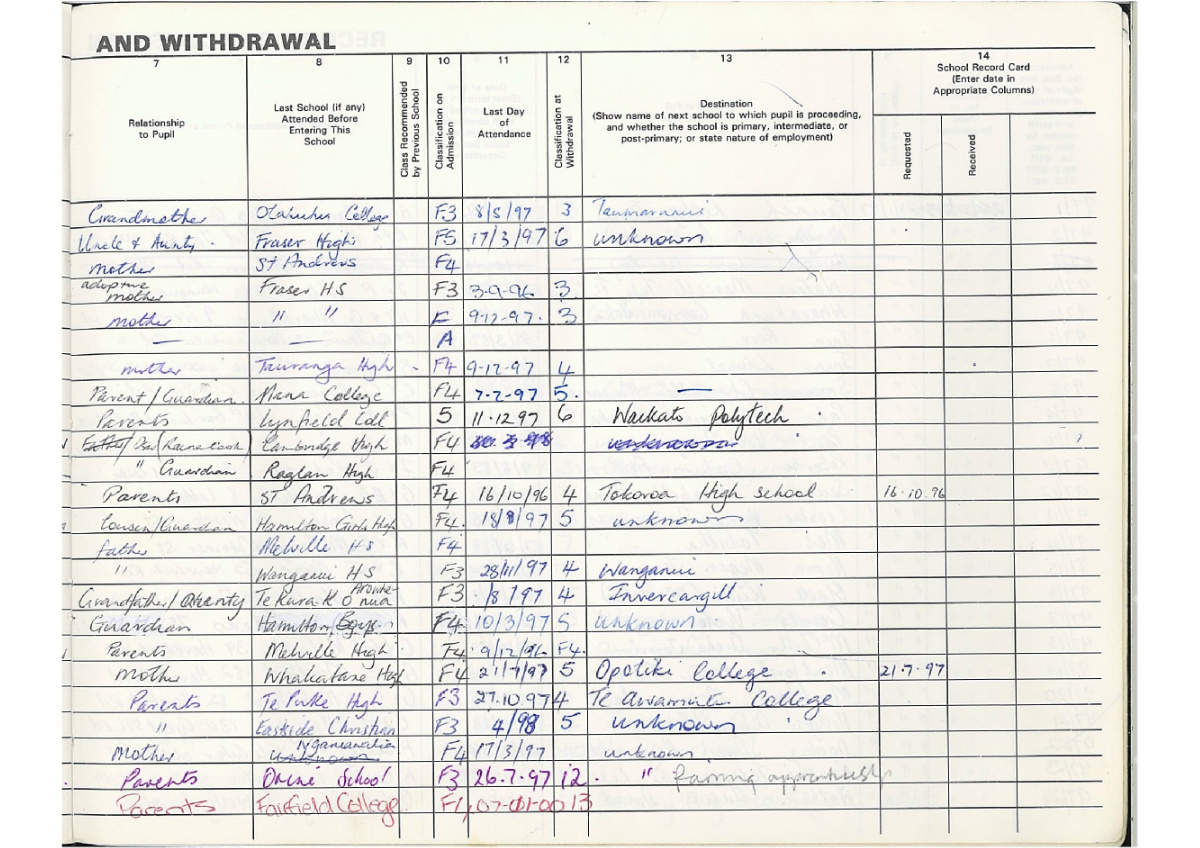 AND WITHDRAWAL
7 8 9 10 11 12 13 14
Relationship to Pupil
Last School (if any) Attended Before Entering This School
Class Recommended by Previous School
Classification on Admission
Last Day of Attendance
Classification at Withdrawal
Destination
(Show name of next school to which pupil is proceeding, and whether the school is primary, intermediate, or post-primary; or state nature of employment)
School Record Card
(Enter date in Appropriate Columns)
Requested
Received
Grandmother Otahuhu College F3 8/5/97 3 Taumaranui
Uncle & Aunty. Fraser High F5 17/3/97 6 unknown
mother St Andrews F4
adoptive mother Fraser HS F3 3-9-96 3
mother " " 9-12-97. 3
— — A
mother Tauranga High F4 9-12-97 4
Parent/Guardian. Mana College F4 7-7-97 5. —
Parents Lynfield Coll 5 11.12.97 6 Waikato Polytech
Cambridge High F4
" Guardian Raglan High F4
Parents ST Andrews F4 16/10/96 4 Tokoroa High school 16.10.96
Cousin/Guardian Hamilton Girls High F4. 18/8/97 5 unknown
father Melville HS F4
" Wanganui HS F3 28/11/97 4 Wanganui
Grandfather/ Te Kura K O nua F3 /8/97 4 Invercargill
Guardian Hamilton F4 10/3/97 5 unknown
Parents Melville High F4. 9/12/96 F4.
Mother Whakatane High F4 21/7/97 5 Opotiki College 21-7-97
Parents Te Puke High F3 27.10.97 4 Te Awamutu College
" Eastside Christian F3 4/98 5 unknown
Mother F4 17/3/97 unknown
Parents School F3 26.7.97 12. "
Parents Fairfield College. F4 07-01-00 13